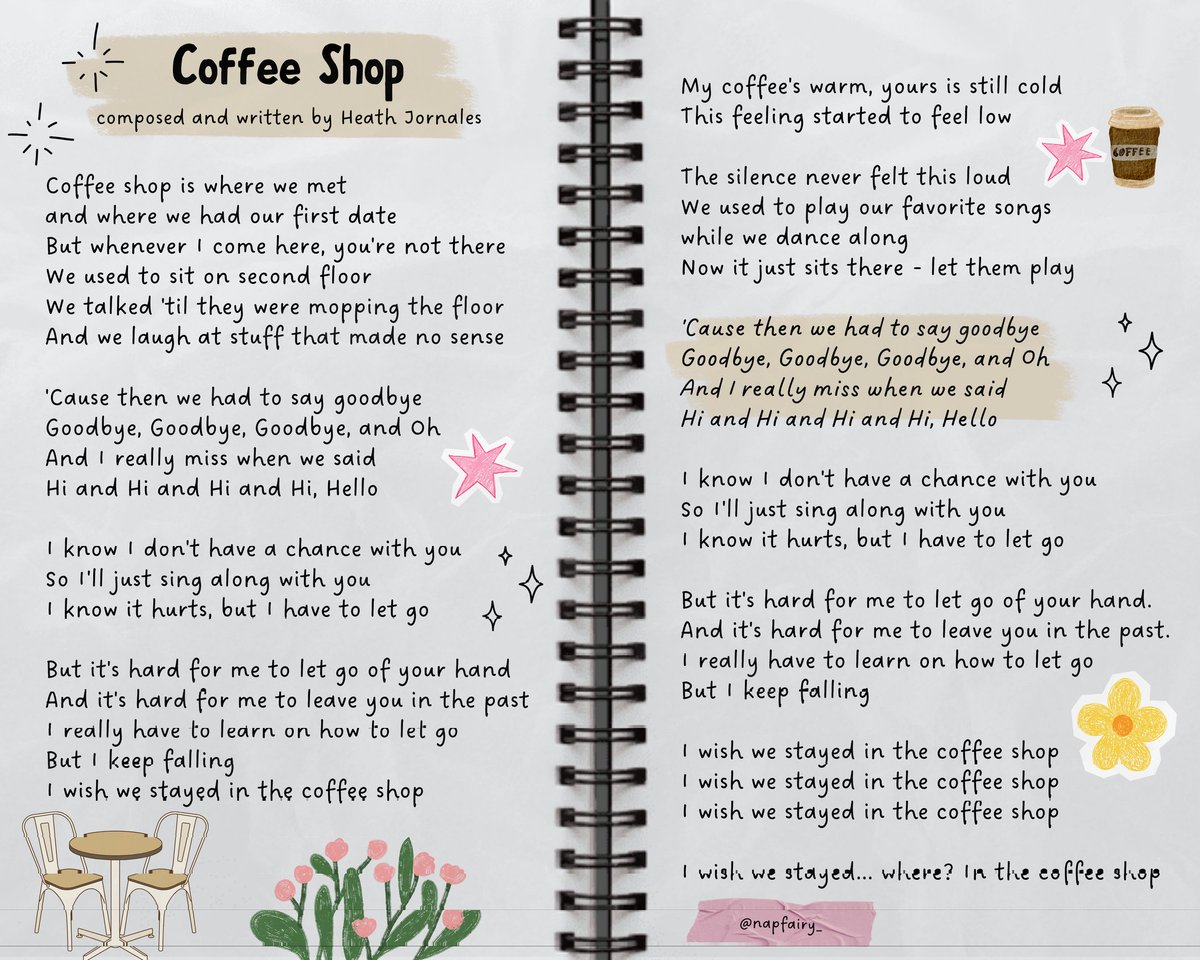 Coffee Shop
composed and written by Heath Jornales
Coffee shop is where we met
and where we had our first date
But whenever I come here, you're not there
We used to sit on second floor
We talked 'til they were mopping the floor
And we laugh at stuff that made no sense
'Cause then we had to say goodbye
Goodbye, Goodbye, Goodbye, and Oh
And I really miss when we said
Hi and Hi and Hi and Hi, Hello
I know I don't have a chance with you
So I'll just sing along with you
I know it hurts, but I have to let go
But it's hard for me to let go of your hand
And it's hard for me to leave you in the past
I really have to learn on how to let go
But I keep falling
I wish we stayed in the coffee shop
My coffee's warm, yours is still cold
This feeling started to feel low
COFFEE
The silence never felt this loud
We used to play our favorite songs
while we dance along
Now it just sits there - let them play
'Cause then we had to say goodbye
Goodbye, Goodbye, Goodbye, and Oh
And I really miss when we said
Hi and Hi and Hi and Hi, Hello
I know I don't have a chance with you
So I'll just sing along with you
I know it hurts, but I have to let go
But it's hard for me to let go of your hand.
And it's hard for me to leave you in the past.
I really have to learn on how to let go
But I keep falling
I wish we stayed in the coffee shop
I wish we stayed in the coffee shop
I wish we stayed in the coffee shop
I wish we stayed... where? In the coffee shop
@napfairy_